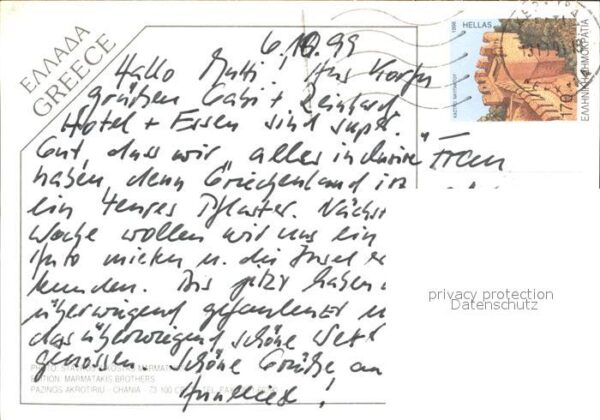 ΕΛΛΑΔΑ
GREECE
6.10.99
Hallo Mutti! Aus Korfu
grüßen Gabi + Reinhard
Hotel + Essen sind super.
Gut, dass wir "alles inclusive"
haben, denn Griechenland is
ein teures Pflaster. Nächst
Woche wollen wir uns ein
Auto mieten u. die Insel er
kunden. Bis jetzt haben
überwiegend gefaulenzt u
das überwiegend schöne Wett
genossen. Schöne Grüße an
Frau
1998
HELLAS
ΕΛΛΗΝΙΚΗ ΔΗΜΟΚΡΑΤΙΑ
170
privacy protection
Datenschutz
EDITION: MARMATAKIS BROTHERS
PAZINOS AKROTIRIU - CHANIA - 73 100